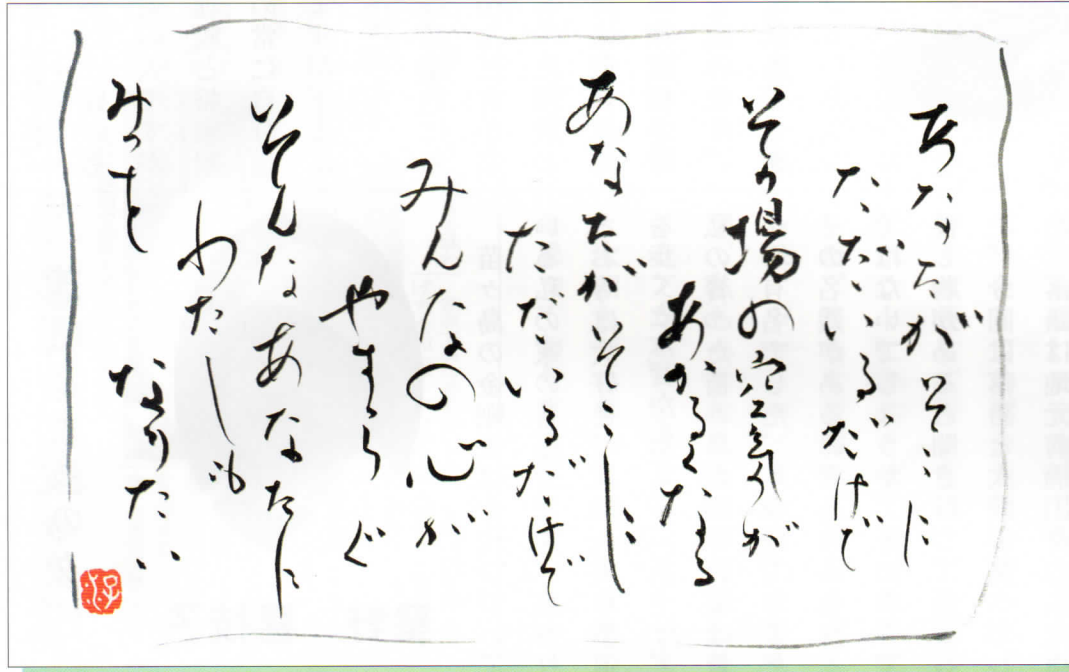 あなたがそこに
ただいるだけで
その場の空気が
あかるくなる
あなたがそこに
ただいるだけで
みんなの心が
やすらぐ
そんなあなたに
わたしも
みつを なりたい